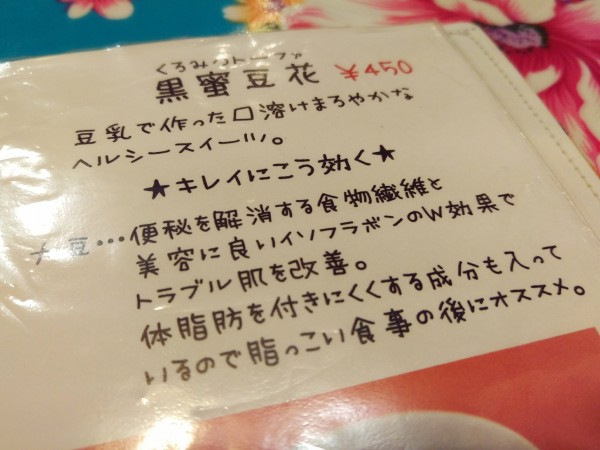 くろみつトーファ
黒蜜豆花 ¥450
豆乳で作った口溶けまろやかな
ヘルシースイーツ。
★キレイにこう効く★
大豆…便秘を解消する食物繊維と
美容に良いイソフラボンのW効果で
トラブル肌を改善。
体脂肪を付きにくくする成分も入って
いるので脂っこい食事の後にオススメ。